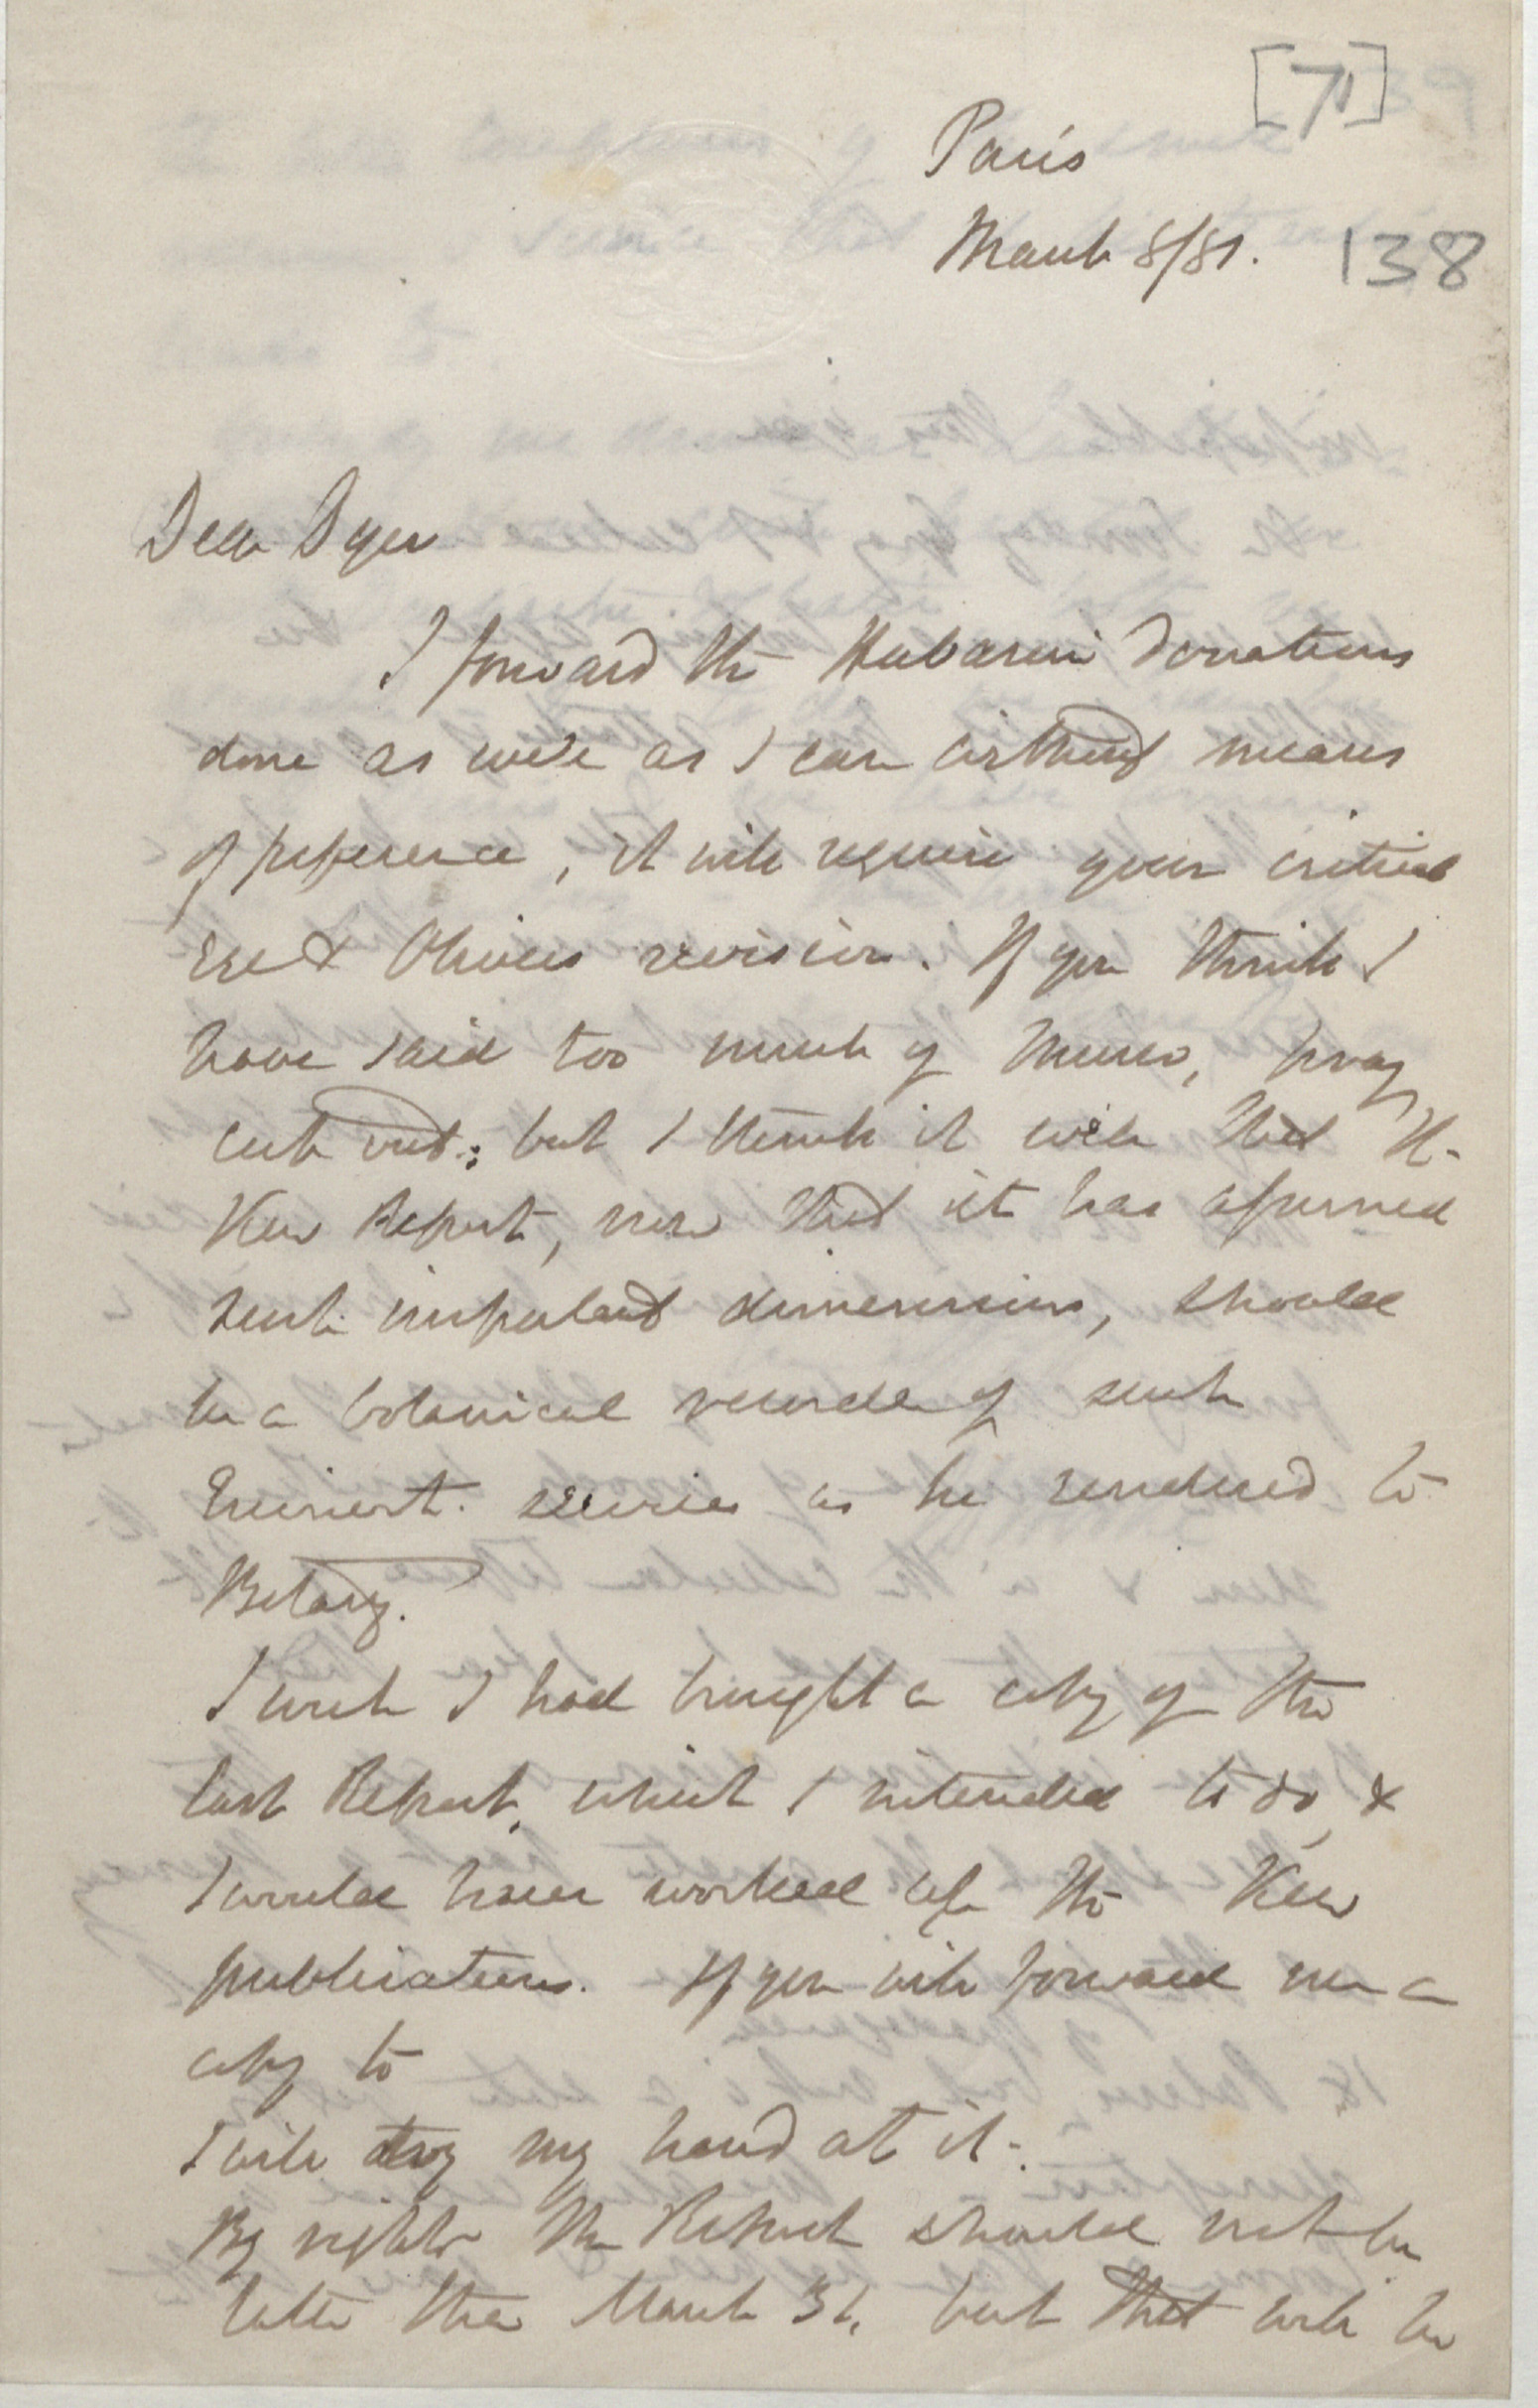 [71]
Paris
March 8/81.
138
Dear Dyer
I forward the Herbarium Donations
done as well as I can without means
of reference, it will require your critical
eye & Olivers revision. If you think I
have said too much of Munro, pray
cut out: but I think it well that the
Kew Report, now that it has assumed
such important dimensions, should
be a botanical record of such
Eminent services as he rendered to
Botany.
I wish I had brought a copy of the
last Report, which I intended to do, &
I would have worked up the Kew
publications. If you will forward me a
copy to
I will try my hand at it.
By rights the Report should not be
later than March 31, but that will be